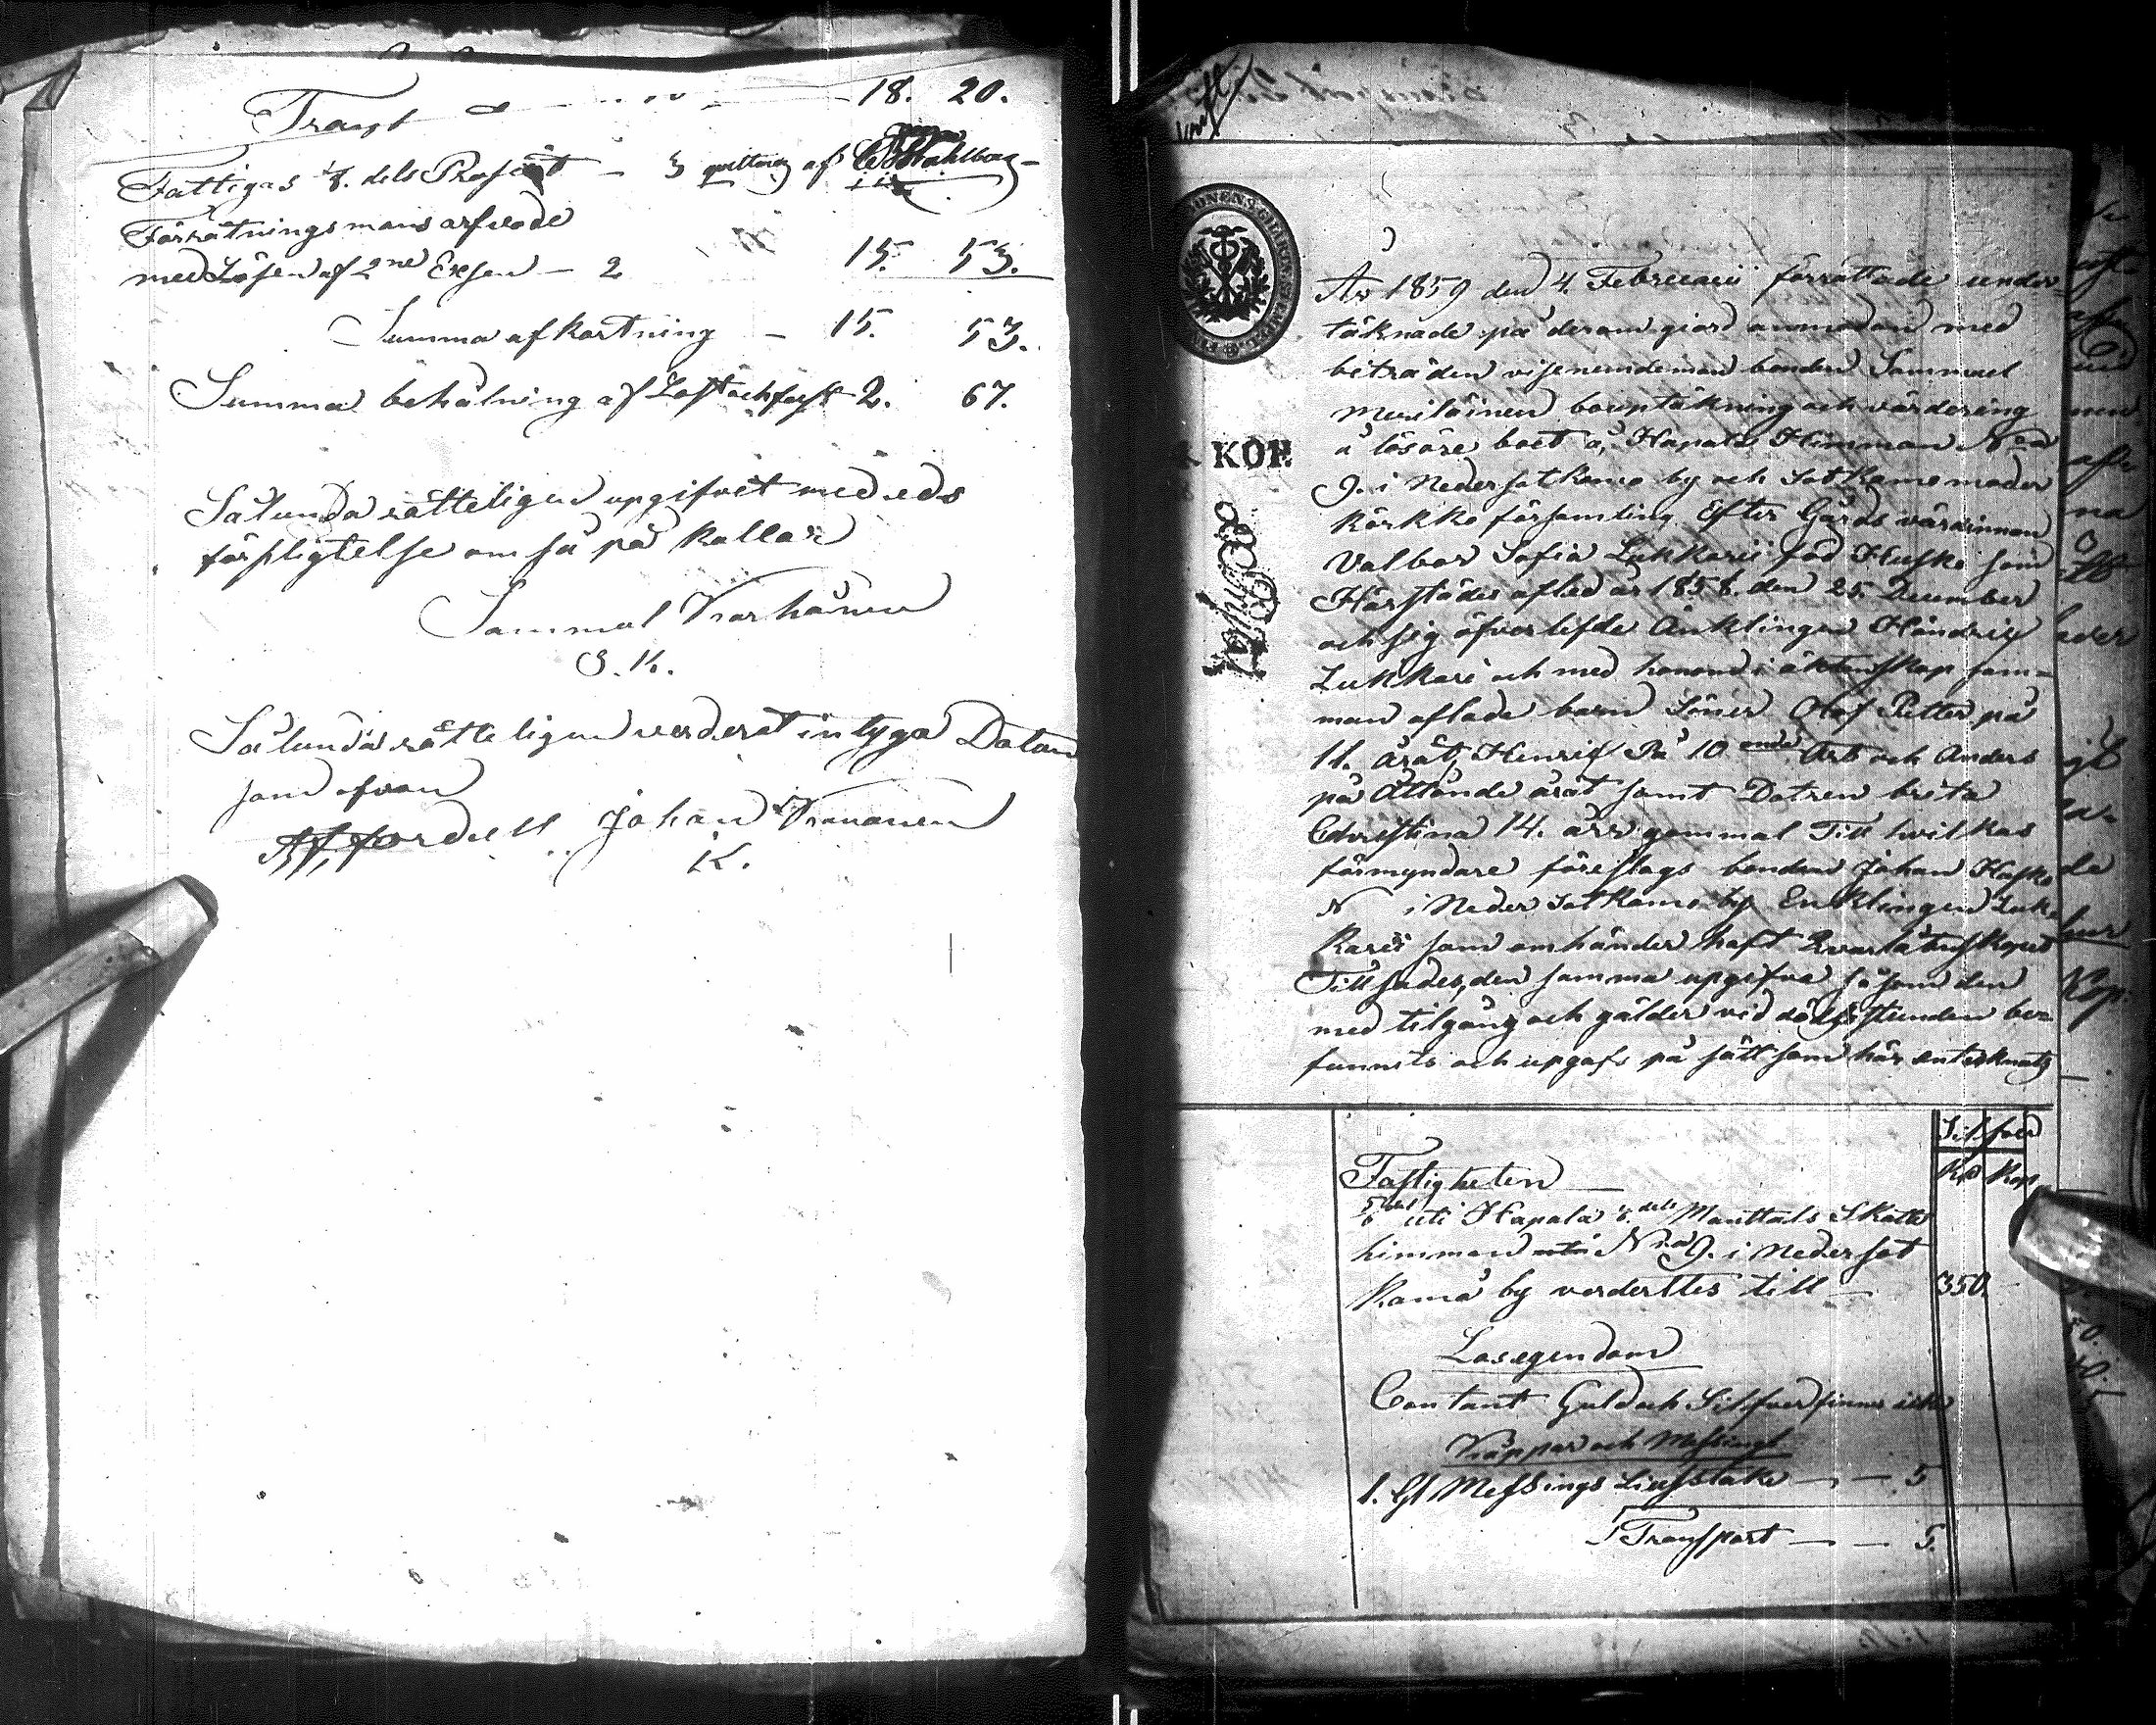 Transpt - - - 18. 20.
Fattigas 1/8. dels Prosent - 3 qvitteras af
Förrätningsmans arfvode
med Lösen af 2ne Exsen - 2 15. 53.
Summa afkortning - 15. 53.
Summa behålning af Löst och fast 2. 67.
Sålunda rätteligen upgifvet med eds
förpligtelse om så på kallas
Sammul Korhonen
S. K.
Sålunda rätteligen verderat intyga Datum
som ofvan
Johan Kananen
K.
År 1859 den 4. Februarii förrättade under-
täknade på derom giord anmodan med
biträden visenemdeman bonden Sammuel
Mustoinen bouptäkning och värdering
å lösöre boet å, Hapala Himman Nro
9. i Nedersotkamo by och Sotkamo moder
kÿrkko församling Efter Gårds värdinnan
Valbor Sofia Lukkarii född Husko som
Härstädes afled år 1858. den 25. December
och sig öfverlefde Änklingen Hindrich
Lukkari och med honom i äktenskap sam-
man aflade barn Söner Olof Petter på
11. årat, Henrik På 10 onde Art och Anders
på Åttånde årat samt Dotren brita
Christina 14. års gammal Till hvilkas
förmyndare föreslags bonden Johan Husko
N i Neder Sotkamo by Enklingen Luk-
karii som omhänder haft Qvarlåtenskapen
Tillsades, den samma upgifva så som den
med tilgång och gälder vid dödsstunden be-
funnits och upgafs på sätt som här antecknats
KOP.
Silfver
Rub Kop
Fastigheten
5/6 del uti Hapala 1/8. dels Manttals Skatte
himman Nro 9. i Nedersot
kamo by verderttes till - 350.
Lösegendom
Contant Guld och Silfver finnes icke
Koppar och Messingt
1. st Messings Liusstake - - 5
Transport - - 5.